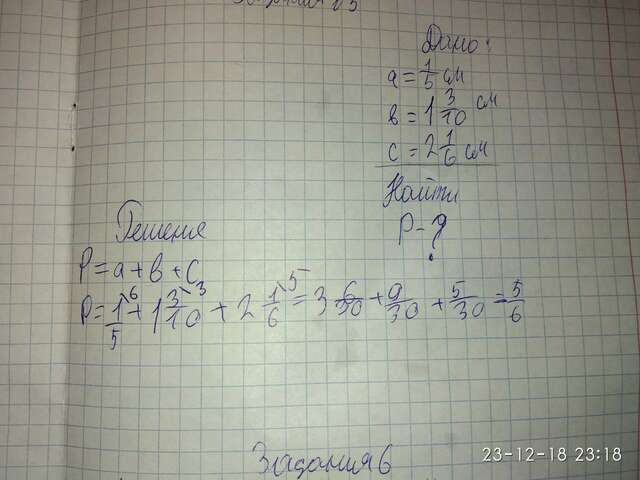 Дано:
a = 1/5 см
в = 1 3/10 см
c = 2 1/6 см
Найти
P - ?
Решения
P = a + в + c
P = 1/5 \6 + 1 3/10 \3 + 2 1/6 \5 = 3 6/30 + 9/30 + 5/30 = 5/6
Задания 6
23-12-18 23:18